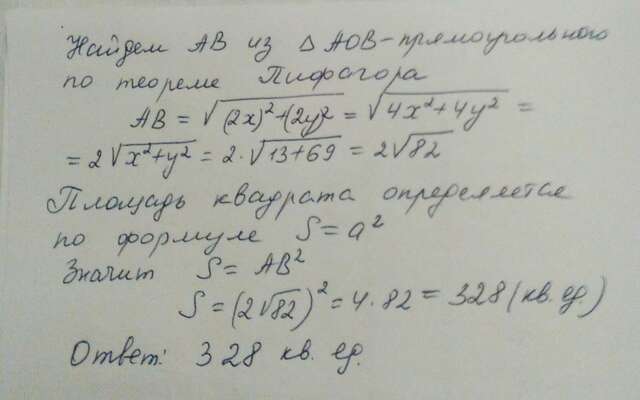 Найдем AB из △AOB-прямоугольного
по теореме Пифагора
AB = √(2x)²+(2y)² = √4x²+4y² =
= 2√x²+y² = 2·√13+69 = 2√82
Площадь квадрата определяется
по формуле S = a²
Значит S = AB²
S = (2√82)² = 4·82 = 328 (кв. ед.)
Ответ: 328 кв. ед.